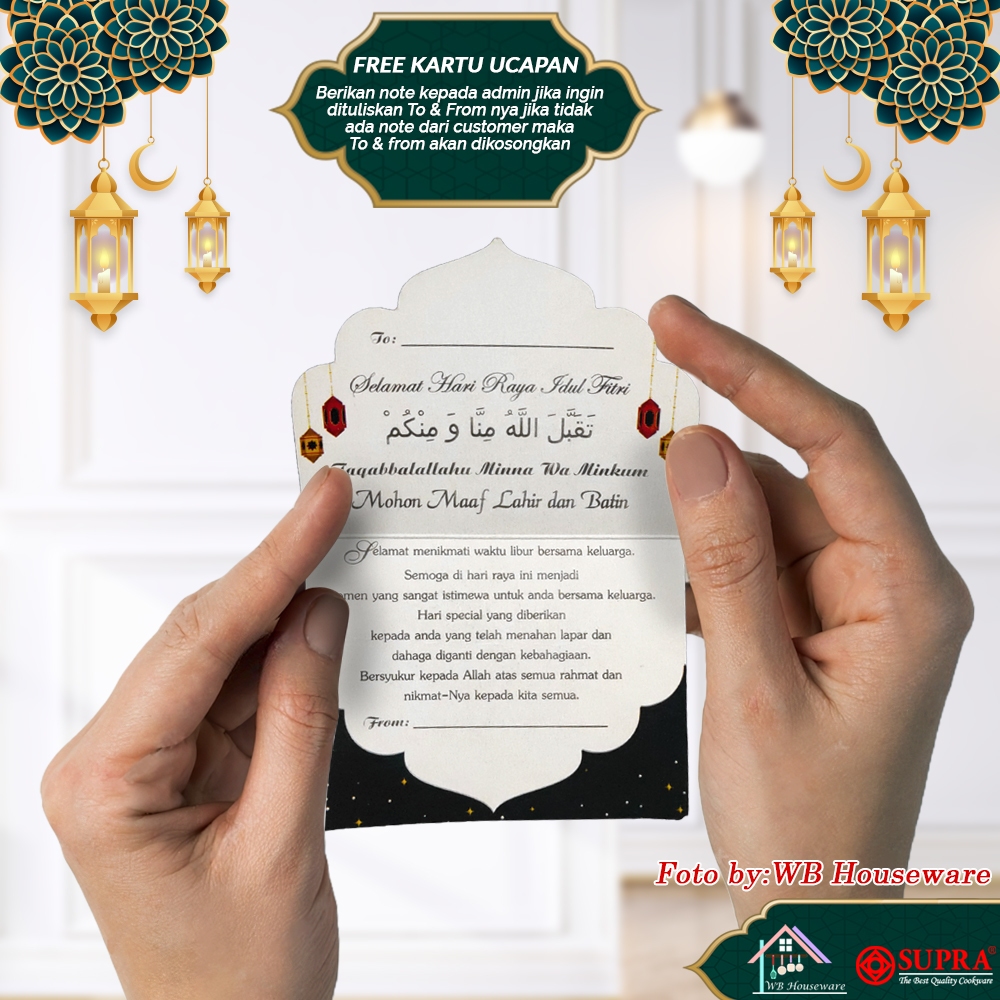 FREE KARTU UCAPAN
Berikan note kepada admin jika ingin
dituliskan To & From nya jika tidak
ada note dari customer maka
To & from akan dikosongkan
To:
Selamat Hari Raya Idul Fitri
تَقَبَّلَ اللَّهُ مِنَّا وَ مِنْكُمْ
Taqabbalallahu Minna Wa Minkum
Mohon Maaf Lahir dan Batin
Selamat menikmati waktu libur bersama keluarga.
Semoga di hari raya ini menjadi
yang sangat istimewa untuk anda bersama keluarga.
Hari special yang diberikan
kepada anda yang telah menahan lapar dan
dahaga diganti dengan kebahagiaan.
Bersyukur kepada Allah atas semua rahmat dan
nikmat-Nya kepada kita semua.
From:
Foto by:WB Houseware
WB Houseware
SUPRA®
The Best Quality Cookware